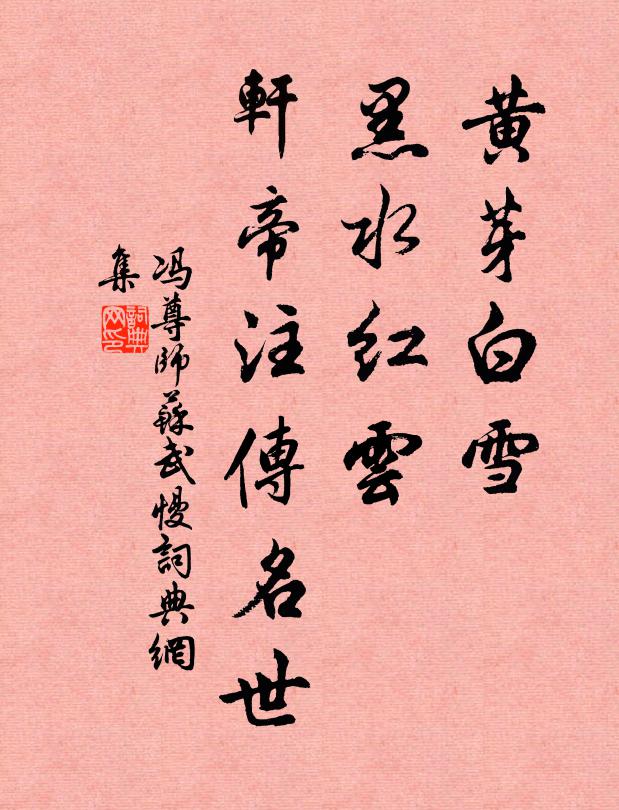 黃芽白雪
黑水紅雲
軒帝注傳名世
馮尊師蘇武慢詞典網
集
詞典
网印